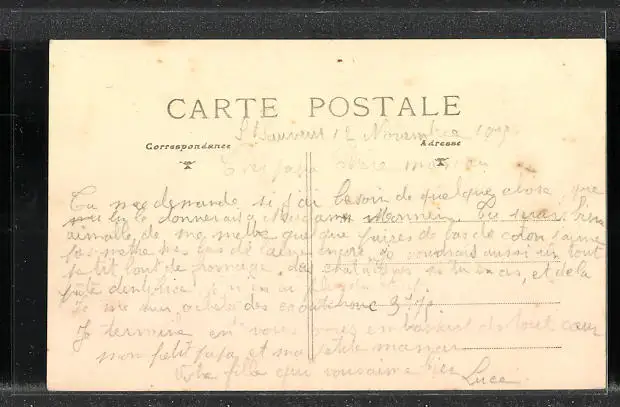 CARTE POSTALE
Correspondance Adresse
St Sauveur 12 Novembre
Cher papa chère maman
Tu me demande si j'ai besoin de quelque chose que
tu le donnerai à Madame Monnier. Tu serais bien
aimable de me mettre quelque paires de bas de coton j'aime
pas mettre mes bas de laine encore. Je voudrais aussi un tout
petit bout de fromage, des chataignes si tu en as, et de la
pâte dentifrice
Je me suis acheté des caoutchouc
Je termine en vous embrassant de tout cœur
mon petit papa et ma petite maman
Votre fille qui vous aime bien
Luce